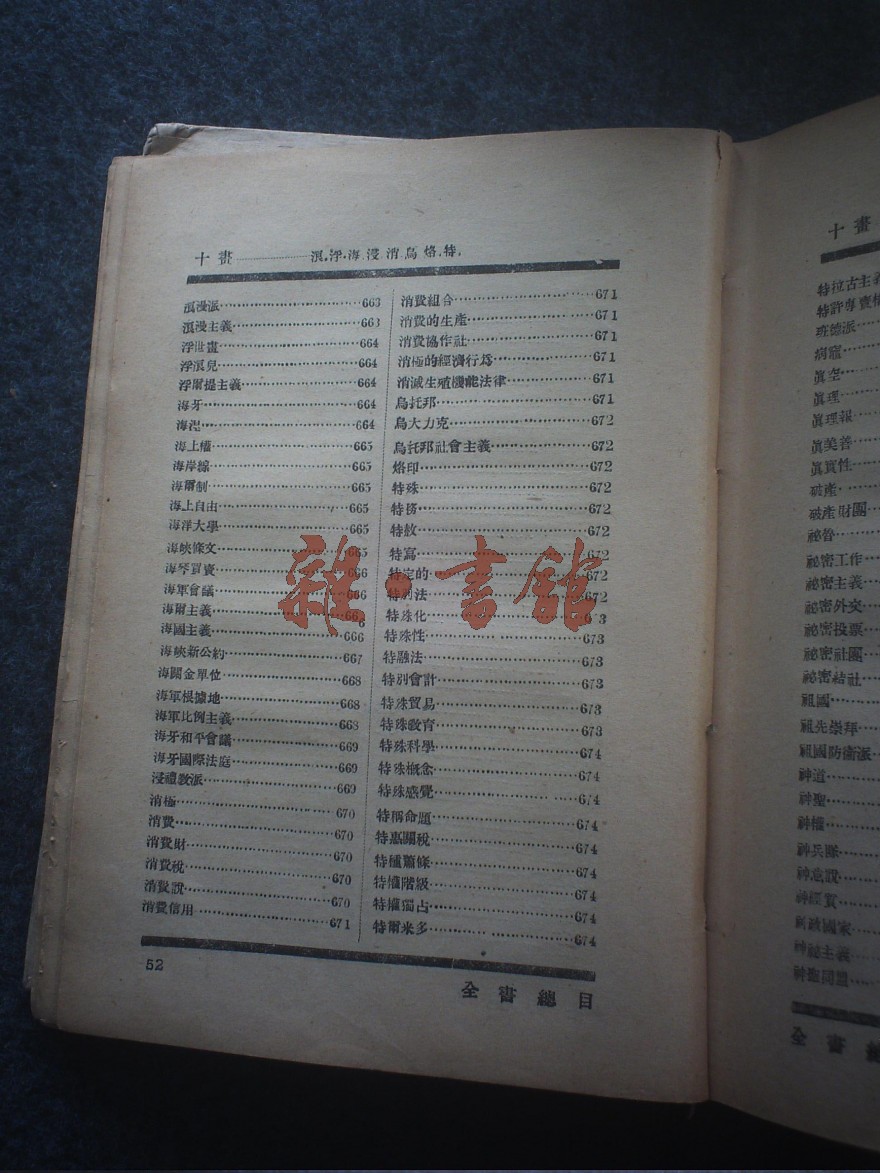 十畫 浪.浮.海.浸.消.烏.烙.特.
浪漫派 663
浪漫主義 663
浮世畫 664
浮浪兒 664
浮爾提主義 664
海牙 664
海涅 664
海上權 665
海岸線 665
海爾制 665
海上自由 665
海洋大學 665
海峽條文 665
海琴買賣 666
海軍會議 666
海爾主義
海國主義 666
海峽新公約 667
海關金單位 668
海軍根據地 668
海軍比例主義 668
海牙和平會議 669
海牙國際法庭 669
浸禮教派 669
消極 670
消費 670
消費財 670
消費稅 670
消費說 670
消費信用 671
消費組合 671
消費的生產 671
消費協作社 671
消極的經濟行爲 671
消滅生殖機能法律 671
烏托邦 671
烏大力克 672
烏托邦社會主義 672
烙印 672
特殊 672
特務 672
特赦 672
特寫 672
特定的 672
特別法 672
特殊化
特殊性 673
特融法 673
特別會計 673
特殊貿易 673
特殊教育 673
特殊科學 674
特殊概念 674
特殊感覺 674
特稱命題 674
特惠關稅 674
特種蕭條 674
特權階級 674
特權獨占 674
特爾米多 674
52
全書總目
雜 書館
十畫
特拉古主義
特許專賣
班德派
病寇
眞空
眞理
眞理報
眞美善
眞實性
破產
破產財團
祕魯
祕密工作
祕密主義
祕密外交
祕密投票
祕密社團
祕密結社
祖國
祖先崇拜
祖國防衞派
神道
神聖
神權
神兵隊
神意說
神經質
神政國家
神祕主義
神聖同盟
全書總